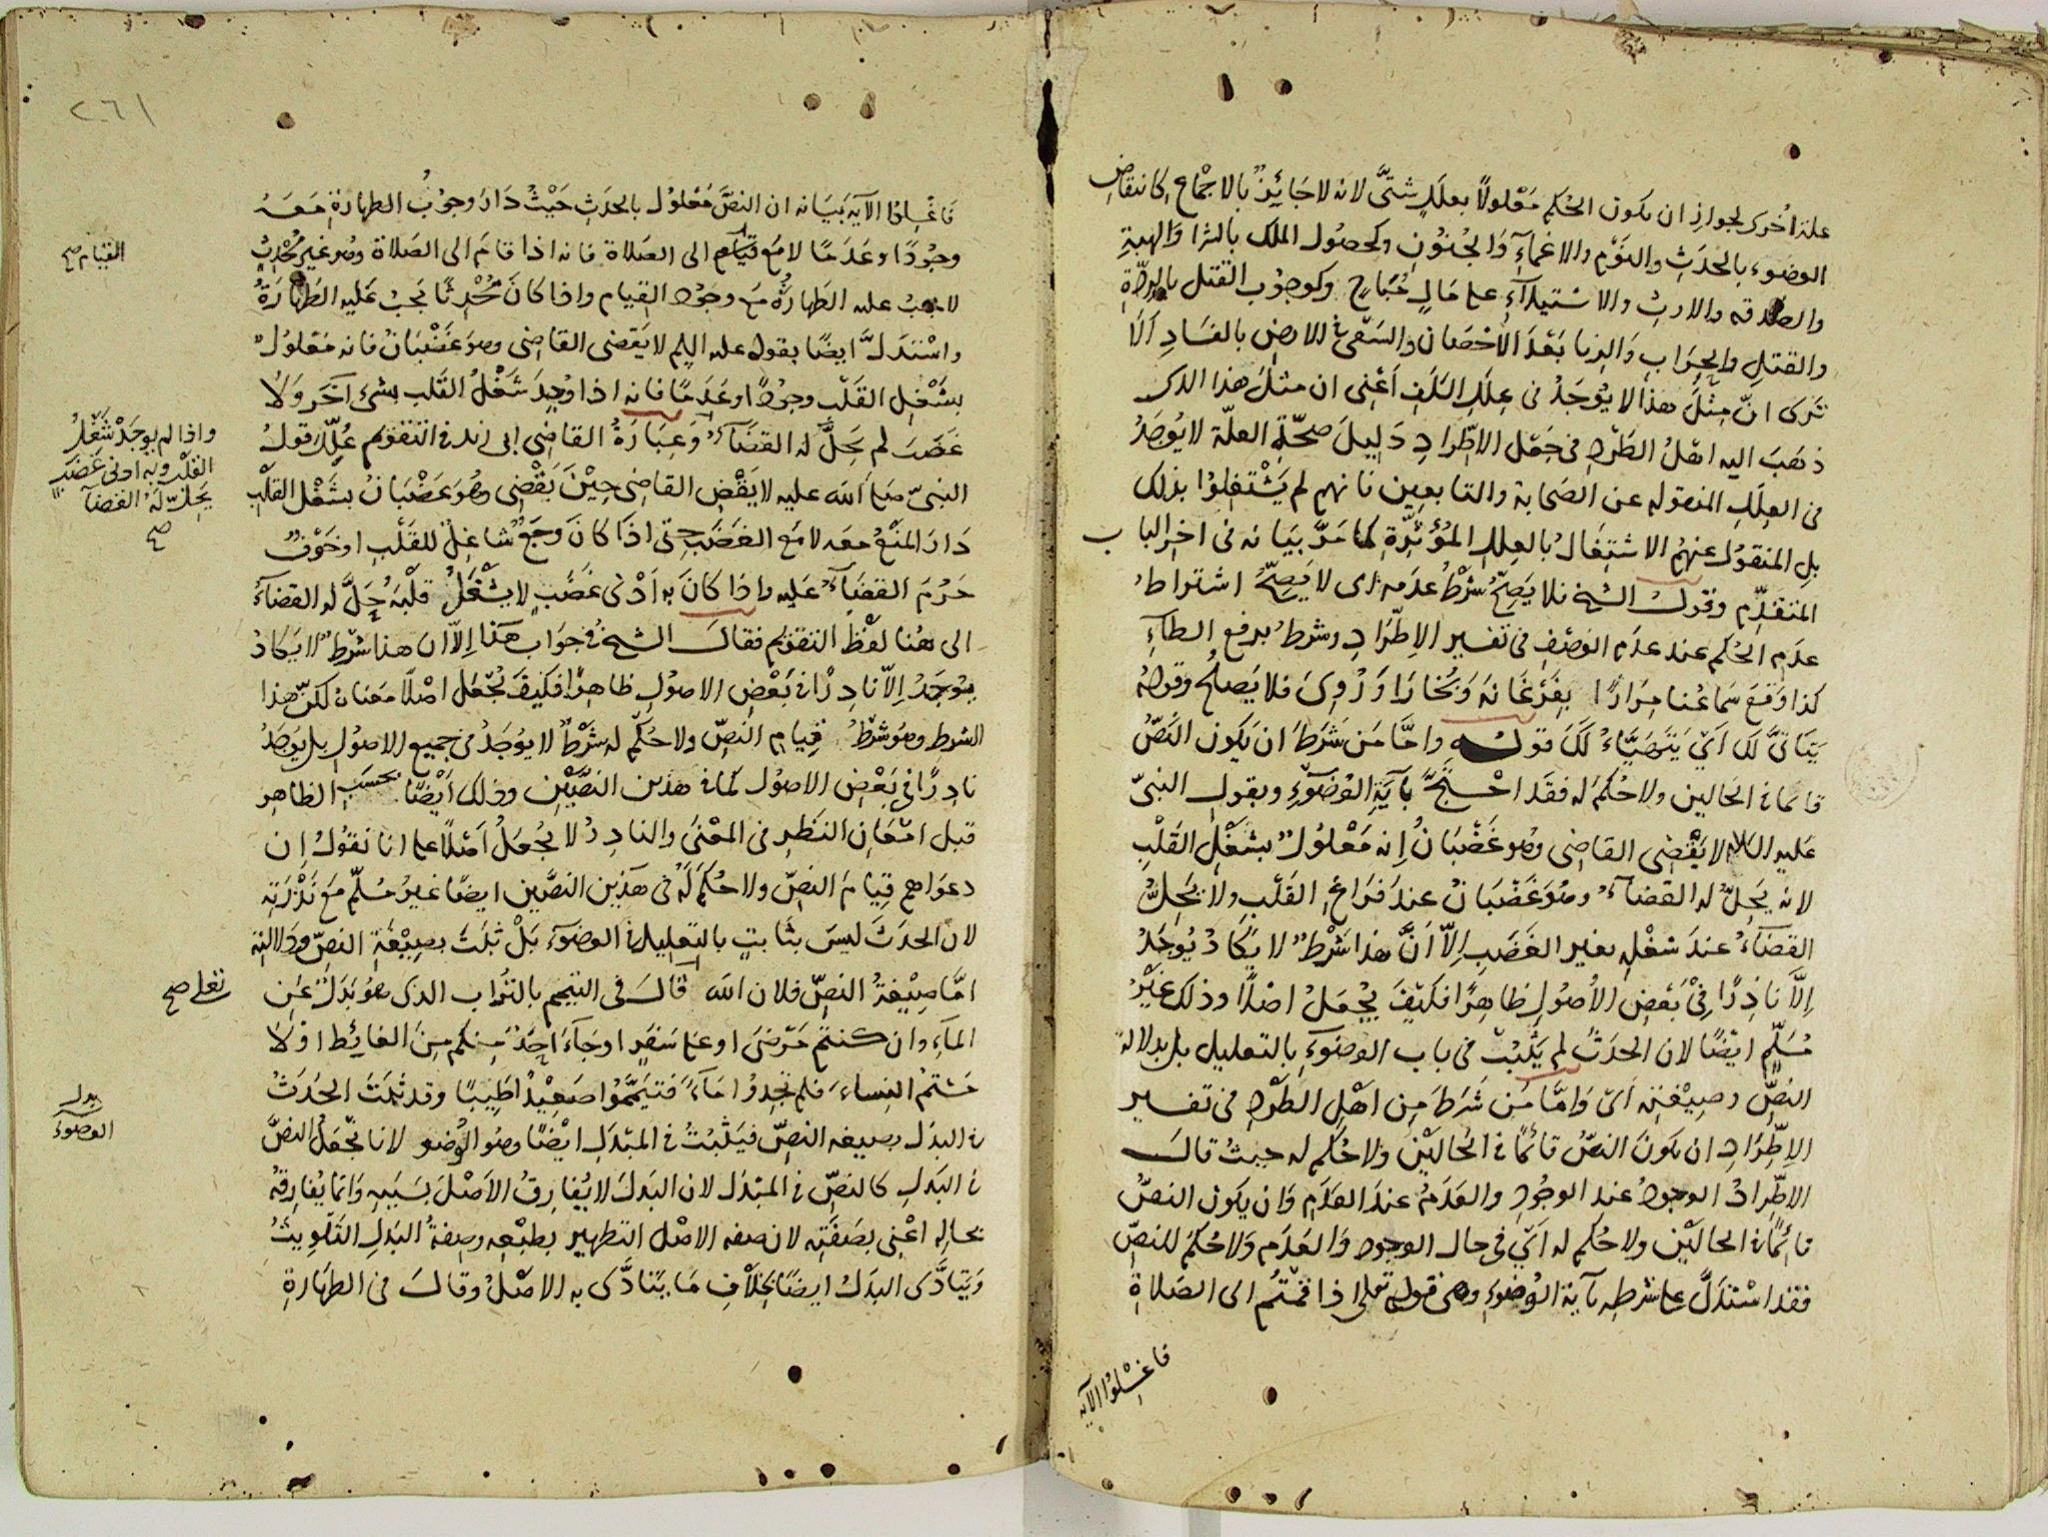 علة اخرى لجواز ان يكون الحكم مَعْلولاً بعلَلٍ شتىَّ لانه لا جَائزٌ بالاجْماع كانتقاض
الوضوء بالحَدَثِ والنَوْمِ والاغماءِ وَالجُنوُنِ وكحصُول الملك بالشرا وَالهبةِ
والصَدقه والارث والاسْتيلآءِ على مَالٍ مُبَاحٍ وكوجوُب القتل بالردّةِ
والقتلِ والحِرَابِ وَالزنا بَعْدَ الاحْصَان والسَعْى فى الارض بالفسَادِ اَلَا
تَرى انّ مِثْلَ هذا لا يوُجَدُ فى عِلَلِ السَلفِ اَعْنِى ان مثلَ هذا الذى
ذهَبَ اليه اهْلُ الطَرْدِ فى جَعْلِ الاطِّرادِ دَليِلَ صحّةِ العلّة لا يوُجَدُ
فى العِلَلِ المنقوله عن الصَحابة والتابعِين فانهم لم يَشْتغلوُا بذلك
بلِ المنقوُل عنهمُ الاشتِغالُ بالعِللِ المُؤثِّرةِ كما مَرَّ بَيَانه فى اخر الباب
المتقدِّم وقولُ الشيخ فلا يَصِحُّ شرْطُ عدَمه اى لا يَصِحُّ اشتراطُ
عدَمِ الحُكم عند عدَمِ الوَصْفِ فى تفسير الاِطِّرَادِ وشرطُ برفع الطاءِ
كذا وَقَعَ سَماعُنا مِرَارًا بفَرْغَانهَ وَبُخَارَا وَرُوىَ فلا يَصلحُ وقولهُ
يَتَأتىَّ لك اَىْ يَتَهَيَّاءُ لَكَ قولــه وامَّا مَن شَرَطَ ان يَكون النَصُّ
قائما فى الحَالين ولا حُكمَ له فقَد احْتجَّ بآيَةِ الوُضوُءِ وبقولِ النبىّ
عَليه السَلام لا يَقْضِى القاضِى وهو غَضْبَانُ اِنه مَعْلوُلٌ بشغْلِ القَلْبِ
لانه يَحِلّ له القضآءُ وهُوَ غَضْبَانُ عندَ فَرَاغِ القَلْبِ ولا يَحِلُّ
القضَآءُ عندَ شغْلهِ بغير الغَضَبِ اِلاّ اَنَّ هذا شَرْطٌ لا يَكَادُ يُوجَدُ
اِلَّا نادِرًا فِىْ بَعْضِ الأُصُولِ ظاهِرًا فكَيْفَ يُجْعَلُ اصْلًا وذلك غَيْرُ
مُسَلّمٍ ايْضًا لان الحَدَثَ لم يَثْبُتْ فى باب الوضوُءِ بالتعليل بل بدلالةِ
النصِّ وصِيْغَتِه اَىْ وَامَّا مَن شَرَطَ مِن اهْلِ الطَرْدِ فى تفسير
الاِطِّرَادِ ان يَكونَ النصُّ قائمًا فى الحَاليْن ولا حُكمَ له حيثُ قال
الاطِّرادُ الوجودُ عند الوجُودِ والعَدَمُ عندَ العَدَمِ وَان يَكون النصُّ
قائمًا فى الحاليْن ولا حُكم له اَىْ فى حال الوجود وَالعَدَمِ وَلا حُكمَ للنصِّ
فقد اسْتدَلَّ على شرطِه بآية الوُضوُءِ وهى قوله تعلى اذا قمْتُم الى الصَلاةِ
فاغْسِلوُا الآيه
٢٦١
فَاغْسِلوُا الآيَه بَيَانه ان النصَّ مَعْلوُل بالحدَثِ حَيْثُ دَارَ وجوُبُ الطهارَةِ مَعَهُ
وجُودًا وعَدَمًا لا مَعَ قيامهِ الى الصَلاة فانه اذا قامَ الى الصَلاة وهو غير مُحْدِثٍ
القيام صح
لا يجبُ عليه الطَهارَةُ مَعَ وجوُد القيام واذا كانَ مُحْدِثًا يَجبُ عَليه الطَهَارَةُ
واسْتدَلَّ ايضًا بقوله عليه السلم لا يَقضى القاضى وهو غَضْبَانُ فانه مَعْلوُلٌ
بشَغْلِ القَلْبِ وجوُدًا وعَدَمًا فانه اذا وُجِدَ شَغْلُ القَلب بشىء آخَرَ وَلا
غضَبَ لم يَحِلَّ له القضَآءُ وَعِبَارَةُ القاضِى ابى زيد فى التقويم عُلِّلَ قولُ
واذا لم يوجَدْ شَغْلُ
القلْبِ وبه ادنى غَضَب
يَحِلّ لَهُ القضآ
صح
النبىّ صَلى الله عليه لا يَقْضِ القاضى حِيْنَ يَقْضِى وهُوَ غَضْبَانُ بشَغْلِ القلْبِ
دَارَ المَنْعُ معَه لا مَع الغَضَبِ حتى اذَا كانَ وجَعٌ شاغِلٌ للقَلْبِ او خَوْفٌ
حَرُمَ القضَآءُ عَليه واذا كانَ به اَدْنى غَضَبٍ لا يَشْغَلُ قلْبَهُ حَلَّ له القضَآءُ
الى هُنا لفْظُ التقويم فقالَ الشيخ فى جوَاب هَذا اِلاّ ان هذا شَرْطٌ لا يَكادُ
يوُجَدُ اِلاّ نادِرًا فى بَعْضِ الاصُولِ ظاهِرًا فكيْفَ يُجْعَلُ اصْلًا معناه لكنّ هذا
الشرط وهو شرْطُ قيامِ النَصِّ ولا حُكْمَ له شَرْطٌ لا يوُجَدُ فى جميع الاصوُلِ بل يوُجَدُ
نادِرًا فى بَعْضِ الاصُولِ كما فى هذين النصَّيْن وذلك اَيْضًا بحسَبِ الظاهِرِ
قبل امْعَانِ النَظرِ فى المعْنىَ والنادِرُ لا يُجْعَلُ اَصْلًا على انا نَقوُلُ اِن
دعوَاهم قِيامَ النصّ ولا حُكمَ لَهُ فى هَذين النصَّين ايضًا غيرُ مُسَلّمٍ مَعَ نَدْرَتِه
لان الحدَثَ ليسَ بثابتٍ بالتعليل فى الوضوُءِ بَلْ ثبَتَ بصِيغَةِ النصِّ ودَلالتِه
امَّا صِيْغةُ النصّ فلان الله قالَ فى التيمم بالتُراب الذى هو بَدَلٌ عَن
تعلى صح
المآءِ وان كنتم مَرْضَى او على سَفَرٍ او جَآءَ احَدٌ مِنكم مِنَ الغائِطِ اوْ لا
مَسْتمُ النِساءَ فلم تَجِدوُا مَآءً فتيَمّمُوا صَعِيْدًا طَيِبًا وقد ثبَتَ الحَدَثُ
فى البدَل بصِيغه النصِّ فيَثْبُتُ فى المبْدَلِ ايْضًا وهو الوُضو لانا نَجْعَلُ النصَّ
بدل
الوضوُءَ
فى البَدَلِ كالنصِّ فى المبْدَل لان البَدَلَ لا يُفارِقُ الاَصْلَ بسَبَبِهِ وَانما يُفارقهُ
بحالِه اعْنِى بصَفَتِه لان صفه الاصْل التطهير بطبْعِه وصفةُ البَدلِ التَلْويثُ
وَيَتَأدَّى البَدَلُ ايضًا بخِلَافِ مَا يَتأدَّى به الاصْلُ وقالَ فى الطهَارَةِ